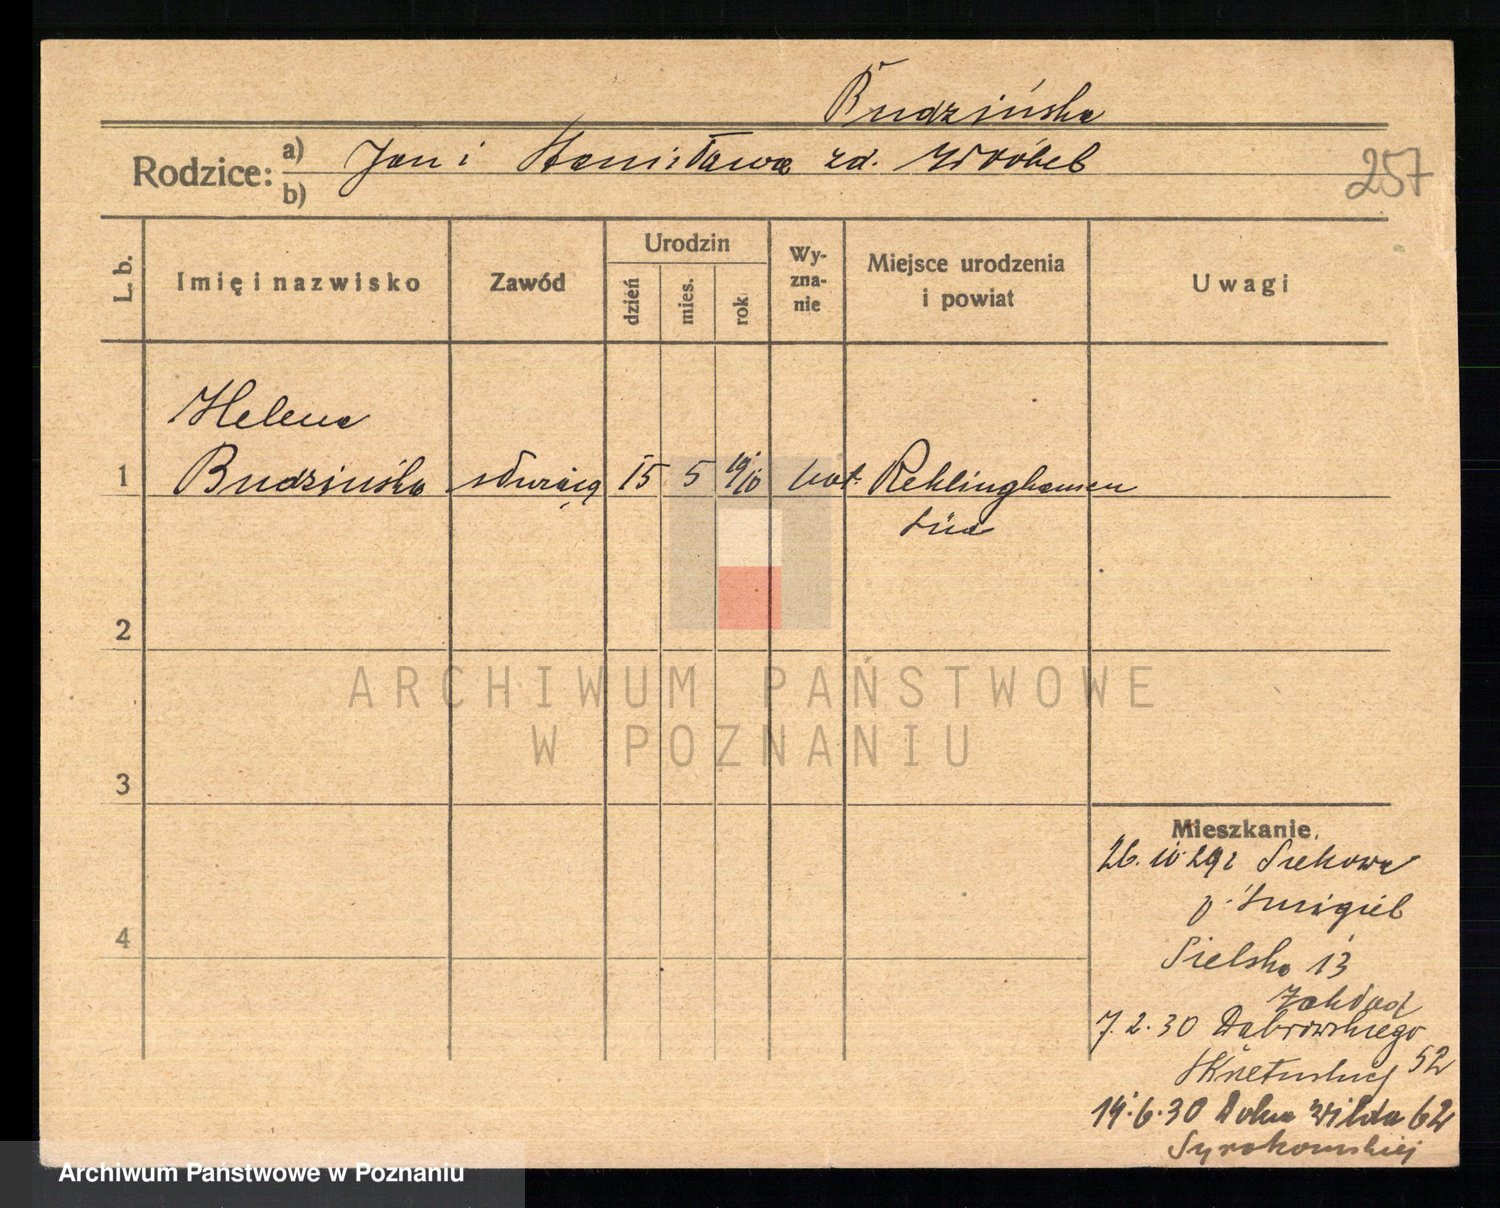 Budzińska
Rodzice: a) Jan i Stanisława zd. Wróbel
b)
257
L. b.
Imię i nazwisko
Zawód
Urodzin
dzień
mies.
rok
Wy-
zna-
nie
Miejsce urodzenia
i powiat
Uwagi
Helena
1 Budzińska służąca 15 5 19/10 kat. Reklinghausen
Süd
2
3
4
ARCHIWUM PAŃSTWOWE
W POZNANIU
Mieszkanie.
26.10.29 z Siekowa
p. Śmigiel
Sielska 13
Zakład
7.2.30 Dąbrowskiego
52
Skrzetuskiej
14.6.30 Dolna Wilda 62
Syrokomskiej
Archiwum Państwowe w Poznaniu